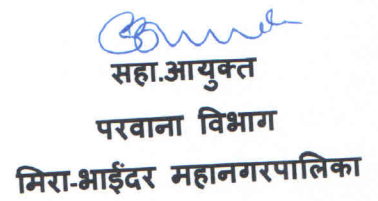 सहा.आयुक्त
परवाना विभाग
मिरा-भाईंदर महानगरपालिका